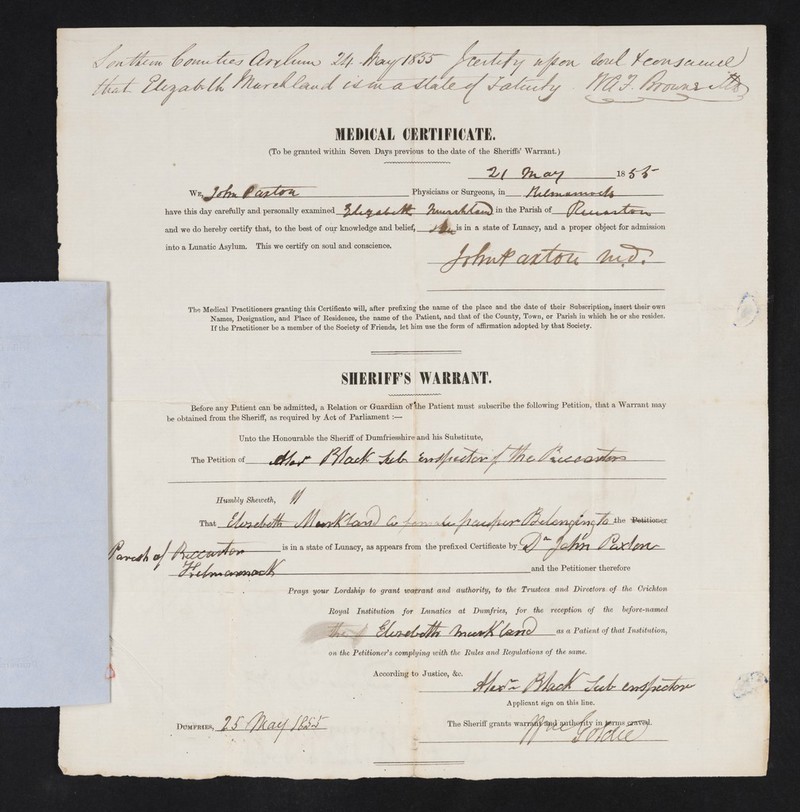 Southern Counties Asylum 24 May 1855 I certify upon soul & conscience
that Elizabeth Murchland is in a state of Fatuity W.A.F. Browne MD
MEDICAL CERTIFICATE.
(To be granted within Seven Days previous to the date of the Sheriffs' Warrant.)
21 May 1855
We, John Paxton Physicians or Surgeons, in Kilmarnock
have this day carefully and personally examined Elizabeth Murchland in the Parish of Riccarton
and we do hereby certify that, to the best of our knowledge and belief, she is in a state of Lunacy, and a proper object for admission
into a Lunatic Asylum. This we certify on soul and conscience.
John Paxton M.D.
The Medical Practitioners granting this Certificate will, after prefixing the name of the place and the date of their Subscription, insert their own
Names, Designation, and Place of Residence, the name of the Patient, and that of the County, Town, or Parish in which he or she resides.
If the Practitioner be a member of the Society of Friends, let him use the form of affirmation adopted by that Society.
SHERIFF'S WARRANT.
Before any Patient can be admitted, a Relation or Guardian of the Patient must subscribe the following Petition, that a Warrant may
be obtained from the Sheriff, as required by Act of Parliament :—
Unto the Honourable the Sheriff of Dumfriesshire and his Substitute,
The Petition of Alexr Black Sub enspector of the Riccarton
Humbly Sheweth,
That Elezebeth Murkland a female pauper Belonging to the Petitioner
Parish of Riccarton is in a state of Lunacy, as appears from the prefixed Certificate by Dr John Paxton
Kilmarnock and the Petitioner therefore
Prays your Lordship to grant warrant and authority, to the Trustees and Directors of the Crichton
Royal Institution for Lunatics at Dumfries, for the reception of the before-named
the Elezebeth Murkland as a Patient of that Institution,
on the Petitioner's complying with the Rules and Regulations of the same.
According to Justice, &c.
Alexr Black Sub enspector
Applicant sign on this line.
DUMFRIES, 25 May 1855 The Sheriff grants warrant and authority in terms craved.
Goldie